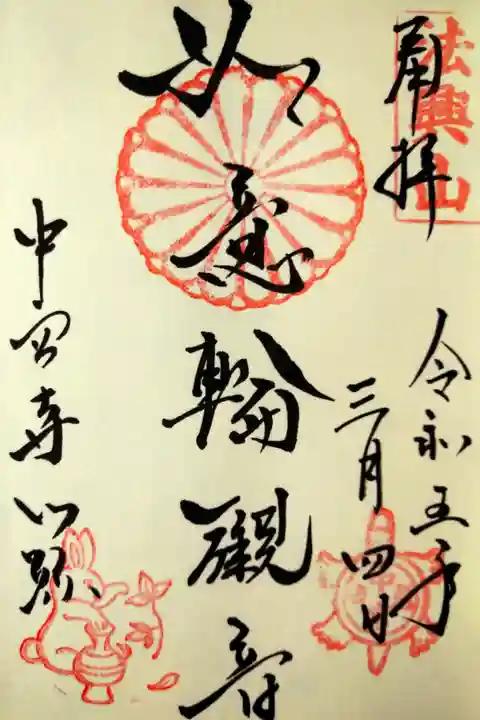 法興山
奉拝
令和五年
三月四日
如意輪観音
中宮寺門跡